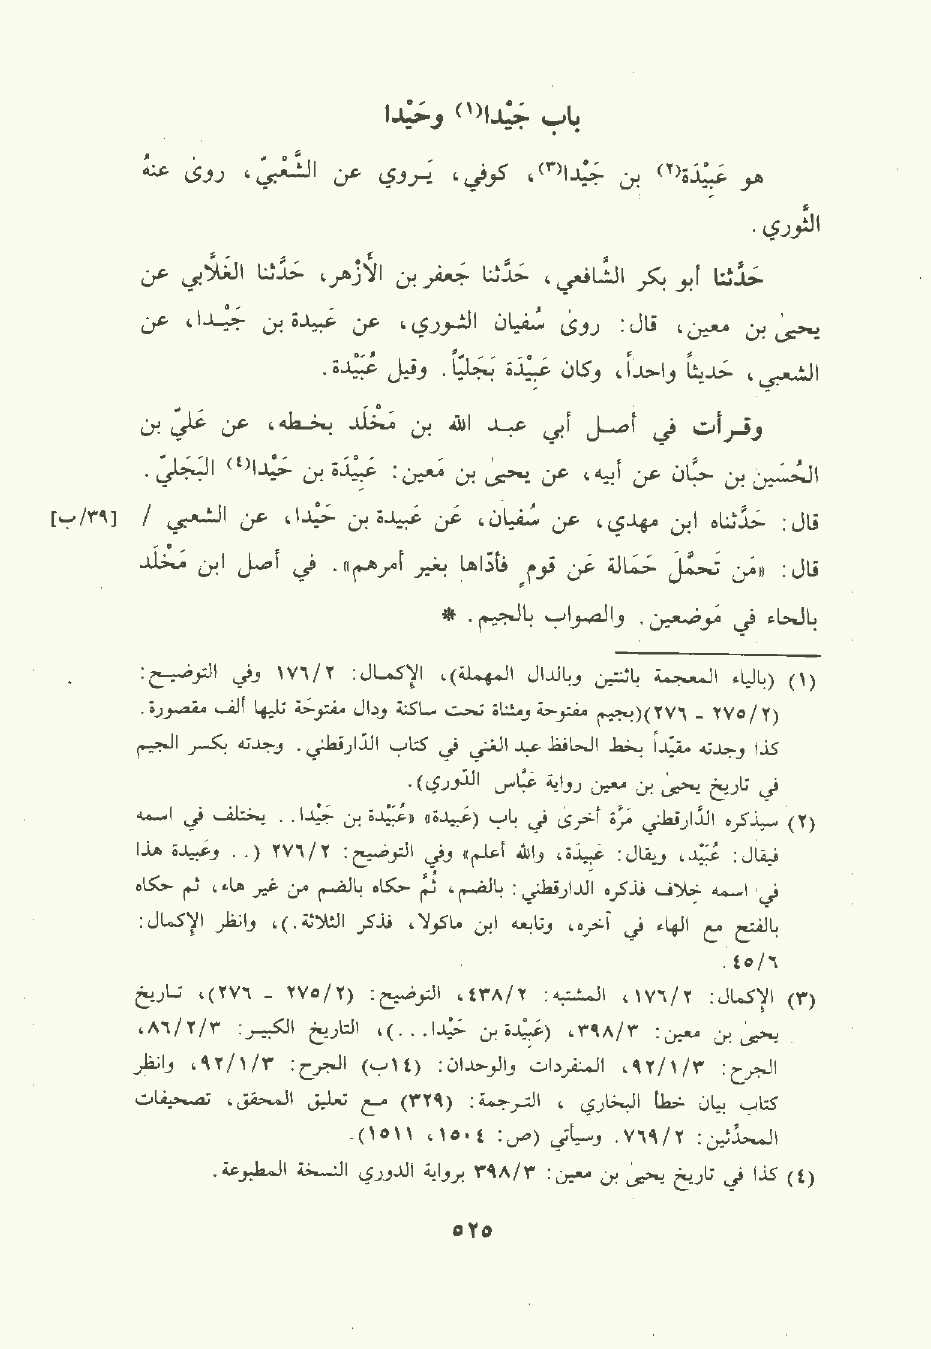 باب جَيْدا(١) وحَيْدا
هو عَبِيْدَة(٢) بن جَيْدا(٣)، كوفي، يَروي عن الشَّعْبيّ، روىٰ عنهُ
الثَّوري.
حَدَّثنا أبو بكر الشَّافعي، حَدَّثنا جَعفر بن الأَزْهر، حَدَّثنا الغَلاَّبي عن
يحيىٰ بن معين، قال: روىٰ سُفيان الثوري، عن عَبيدة بن جَيْدا، عن
الشعبي، حَديثاً واحداً، وكان عَبِيْدَة بَجَليّاً. وقيل عُبَيْدة.
وقرأت في أصل أبي عبد الله بن مَخْلَد بخطه، عن عَليّ بن
الحُسَين بن حبَّان عن أبيه، عن يحيىٰ بن مَعين: عَبِيْدَة بن حَيْدا(٤) البَجَليّ.
قال: حَدَّثناه ابن مهدي، عن سُفيان، عَن عَبيدة بن حَيْدا، عن الشعبي / [٣٩/ب]
قال: «مَن تَحمَّلَ حَمَالة عَن قومٍ فأدّاها بغير أمرهم». في أصل ابن مَخْلَد
بالحاء في مَوضعين. والصواب بالجيم. *
(١) (بالياء المعجمة باثنتين وبالدال المهملة)، الإكمال: ١٧٦/٢ وفي التوضيح:
(٢٧٥/٢ - ٢٧٦)(بجيم مفتوحة ومثناة تحت ساكنة ودال مفتوحَة تليها ألف مقصورة.
كذا وجدته مقيّداً بخط الحافظ عبد الغني في كتاب الدّارقطني. وجدته بكسر الجيم
في تاريخ يحيىٰ بن معين رواية عبَّاس الدّوري).
(٢) سيذكره الدّارقطني مَرَّة أخرىٰ في باب (عَبيدة) «عُبَيْدة بن جَيْدا. . يختلف في اسمه
فيقال: عُبَيْد، ويقال: عَبِيْدة، والله أعلم» وفي التوضيح: ٢٧٦/٢ (. . وعَبيدة هذا
في اسمه خلاف فذكره الدارقطني: بالضم، ثُمَّ حكاه بالضم من غير هاء، ثم حكاه
بالفتح مع الهاء في آخره، وتابعه ابن ماكولا، فذكر الثلاثة.)، وانظر الإكمال:
٤٥/٦.
(٣) الإكمال: ١٧٦/٢، المشتبه: ٤٣٨/٢، التوضيح: (٢٧٥/٢ - ٢٧٦)، تاريخ
يحيىٰ بن معين: ٣٩٨/٣، (عَبِيْدة بن حَيْدا. . .)، التاريخ الكبير: ٨٦/٢/٣،
الجرح: ٩٢/١/٣، المنفردات والوحدان: (١٤ب) الجرح: ٩٢/١/٣، وانظر
كتاب بيان خطأ البخاري ، الترجمة: (٣٢٩) مع تعليق المحقق، تصحيفات
المحدِّثين: ٧٦٩/٢. وسيأتي (ص: ١٥٠٤، ١٥١١).
(٤) كذا في تاريخ يحيىٰ بن معين: ٣٩٨/٣ برواية الدوري النسخة المطبوعة.
٥٢٥